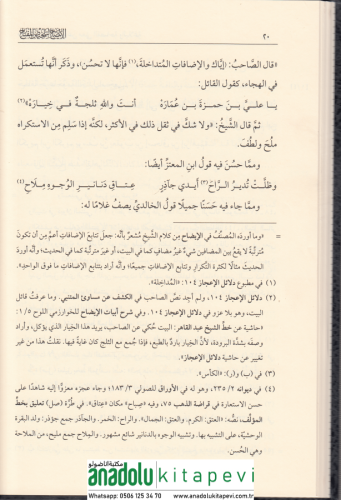 ٢٠
«قال الصَّاحبُ: إيَّاك والإضافاتِ المتداخلةَ،(١) فإنَّها لا تحسُن»، وذَكَر أنَّها تُستعمَل
في الهجاء، كقول القائل:
يا عليُّ بنَ حمزةَ بنِ عُمَارَهْ أنتَ واللهِ ثلجةٌ في خِيارَهْ(٢)
ثمَّ قال الشَّيخُ: «ولا شكَّ في ثقل ذلك في الأكثر، لكنَّه إذا سَلِم مِن الاستكراه
ملُح ولَطُف.
وممَّا حسُن فيه قولُ ابنِ المعتزِّ أيضًا:
وظلَّتْ تُديرُ الرَّاحَ(٣) أيدي جآذرٍ عتاقِ دنانيرِ الوجوهِ مِلاحِ(٤)
وممَّا جاء فيه حَسَنًا جميلًا قولُ الخالديِّ يصفُ غلامًا له:
= «وما أورده المصنِّف في الإيضاح مِن كلام الشَّيخ مُشعرٌ بأنَّه: جعل تتابعَ الإضافاتِ أعمَّ مِن أن تكونَ
مُترتِّبةً لا يقعُ بين المضافين شيءٌ غيرُ مضافٍ كما في البيت، أو غيرَ مترتِّبة كما في الحديث؛ وأنَّه أورد
الحديث مثالًا لكثرة التَّكرار وتتابع الإضافاتِ جميعًا؛ وأنَّه أراد بتتابع الإضافاتِ ما فوق الواحد».
(١) في مطبوع دلائل الإعجاز ١٠٤: «المتداخلة».
(٢) دلائل الإعجاز ١٠٤، ولم أجد نصَّ الصاحب في الكشف عن مساوئ المتنبي. وما عرفتُ قائل
البيت، وهو بلا عزو في دلائل الإعجاز ١٠٤، وفي شرح أبيات الإيضاح للخوارزمي اللوح ١/٥:
«حاشية عن خطِّ الشيخ عبد القاهر: البيتُ حُكي عن الصاحب، يريد هذا الخِيار الذي يؤكل، وأراد
وصفه بشدَّة البرودة، لأنَّ الخِيار باردٌ بالطبع، فإذا جُمع مع الثلج كان غايةً فيها. نقلتُ هذا من غير
تغيير عن حاشية دلائل الإعجاز».
(٣) في (ب) و(ر): «الكأس».
(٤) في ديوانه ٢٣٥/٢، وهو له في الأوراق للصولي ١٨٣/٣؛ وجاء عجزه معزوًّا إليه شاهدًا على
حسن الاستعارة في قراضة الذهب ٧٥، وفيه «صباح» مكان «عتاق». في طُرَّة (صل) تعليق بخطِّ
المؤلِّف، نصُّه: «العتق: الكرم. والعتق: الجمال». والراح: الخمر. والجآذر جمع جؤذر: ولد البقرة
الوحشيَّة، على التشبيه بها. وتشبيه الوجوه بالدنانير شائع مشهور. والمِلاح جمع مليح، من الملاحة
وهي الحُسن.
مكتبة الأناضولو
anadolu kitapevi
Whatsapp: 0506 125 34 70 www.anadolukitapevi.com